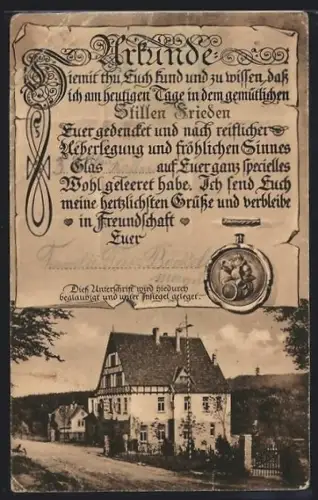 Urkunde
Hiemit thu Euch kund und zu wissen, daß
ich am heutigen Tage in dem gemütlichen
Stillen Frieden
Euer gedencket und nach reiflicher
Ueberlegung und fröhlichen Sinnes
Glas auf Euer ganz specielles
Wohl geleeret habe. Ich send Euch
meine hertzlichsten Grüße und verbleibe
in Freundschaft
Euer
Dieß Unterschrift wird hiedurch
beglaubigt und unser Insiegel geleget.